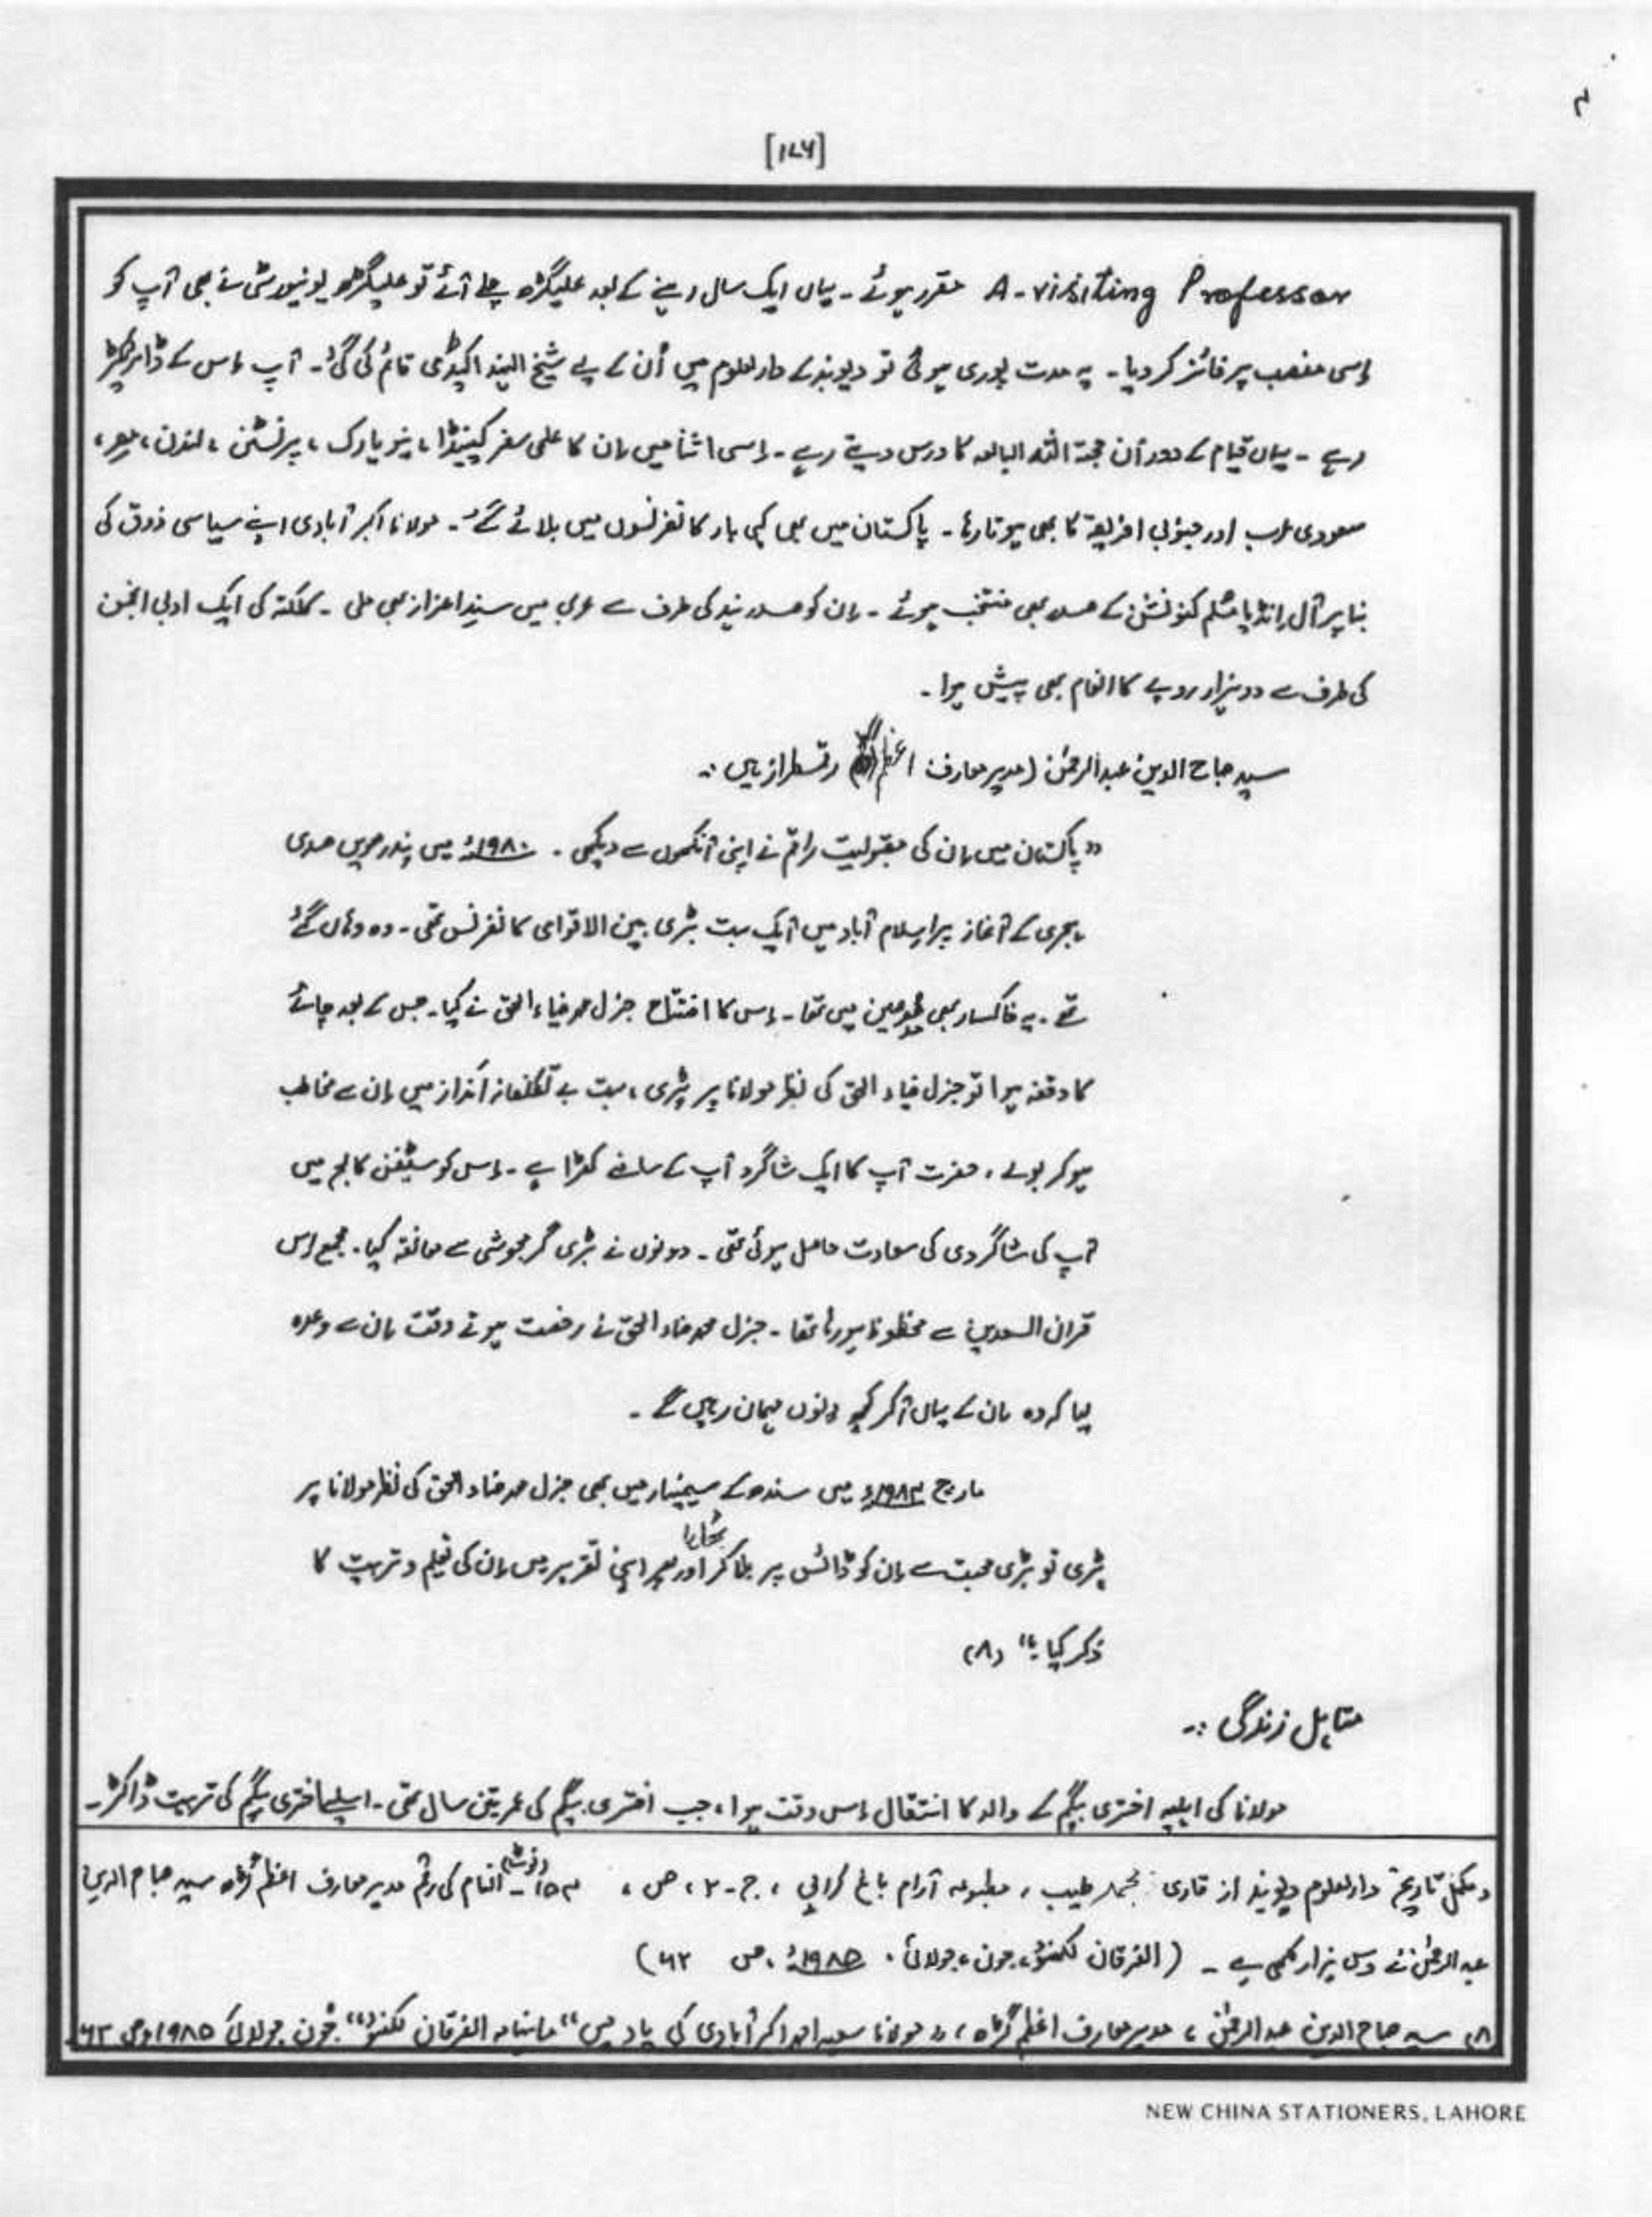 [۱۷۶]
A-visiting Professor مقرر ہوئے ۔ یہاں ایک سال رہنے کے بعد علیگڑھ چلے آئے تو علیگڑھ یونیورسٹی نے بھی آپ کو
اِسی منصب پر فائز کر دیا ۔ یہ مدت پوری ہو گئی تو دیوبند کے دارالعلوم میں اُن کے لیے شیخ الہند اکیڈمی قائم کی گئی ۔ آپ اِس کے ڈائریکٹر
رہے ۔ یہاں قیام کے دوران حجۃ اللہ البالغہ کا درس دیتے رہے ۔ اِسی اثنا میں اِن کا علمی سفر کینیڈا ، نیویارک ، پرنسٹن ، لندن ، مصر ،
سعودی عرب اور جنوبی افریقہ کا بھی ہوتا رہا ۔ پاکستان میں بھی کئی بار کانفرنسوں میں بلائے گئے ۔ مولانا اکبر آبادی اپنے سیاسی ذوق کی
بنا پر آل انڈیا مسلم کنونشن کے صدر بھی منتخب ہوئے ۔ اِن کو صدر ہند کی طرف سے عربی میں سندِ اعزاز بھی ملی ۔ کلکتہ کی ایک ادبی انجمن
کی طرف سے دو ہزار روپے کا انعام بھی پیش ہوا ۔
سید صباح الدین عبدالرحمٰن (مدیر معارف اعظم گڑھ) رقمطراز ہیں :۔
" پاکستان میں اِن کی مقبولیت راقم نے اپنی آنکھوں سے دیکھی ۔ ۱۹۸۰ء میں پندرھویں صدی
ہجری کے آغاز پر اسلام آباد میں ایک بہت بڑی بین الاقوامی کانفرنس تھی ۔ وہ وہاں گئے
تھے ۔ یہ خاکسار بھی مدعوین میں تھا ۔ اِس کا افتتاح جنرل محمد ضیاء الحق نے کیا ۔ جس کے بعد چائے
کا وقفہ ہوا تو جنرل ضیاء الحق کی نظر مولانا پر پڑی ، بہت بے تکلفانہ انداز میں اِن سے مخاطب
ہو کر بولے ، حضرت آپ کا ایک شاگرد آپ کے سامنے کھڑا ہے ۔ اِس کو سٹیفن کالج میں
آپ کی شاگردی کی سعادت حاصل ہوئی تھی ۔ دونوں نے بڑی گرمجوشی سے معانقہ کیا ۔ مجمع اِس
قران السعدین سے محظوظ ہو رہا تھا ۔ جنرل محمد ضیاء الحق نے رخصت ہوتے وقت اِن سے وعدہ
لیا کہ وہ اِن کے یہاں آ کر کچھ دنوں مہمان رہیں گے ۔
مارچ ۱۹۸۴ء میں سندھ کے سیمینار میں بھی جنرل محمد ضیاء الحق کی نظر مولانا پر
پڑی تو بڑی محبت سے اِن کو ڈائس پر بلا کر بٹھایا اور پھر اپنی تقریر میں اِن کی تعلیم و تربیت کا
ذکر کیا ۔" (۸)
متاہل زندگی :۔
مولانا کی اہلیہ اختری بیگم کے والد کا انتقال اِس وقت ہوا ، جب اختری بیگم کی عمر تین سال تھی ۔ اسلیے اختری بیگم کی تربیت ڈاکٹر ۔
د مکمل تاریخ دارالعلوم دیوبند از قاری محمد طیب ، مطبوعہ آرام باغ کراچی ، ج ۔ ۲ ، ص ، ۱۵۳ ۔ (نوٹ) انعام کی رقم مدیر معارف اعظم گڑھ سید صباح الدین
عبدالرحمٰن نے دس ہزار لکھی ہے ۔ (الفرقان لکھنؤ ، جون ، جولائی ، ۱۹۸۵ء ، ص ۶۲)
۸) سید صباح الدین عبدالرحمٰن ، مدیر معارف اعظم گڑھ ، " مولانا سعید احمد اکبر آبادی کی یاد میں " ماہنامہ الفرقان لکھنؤ " جون جولائی ۱۹۸۵ء ص ۶۳
NEW CHINA STATIONERS, LAHORE